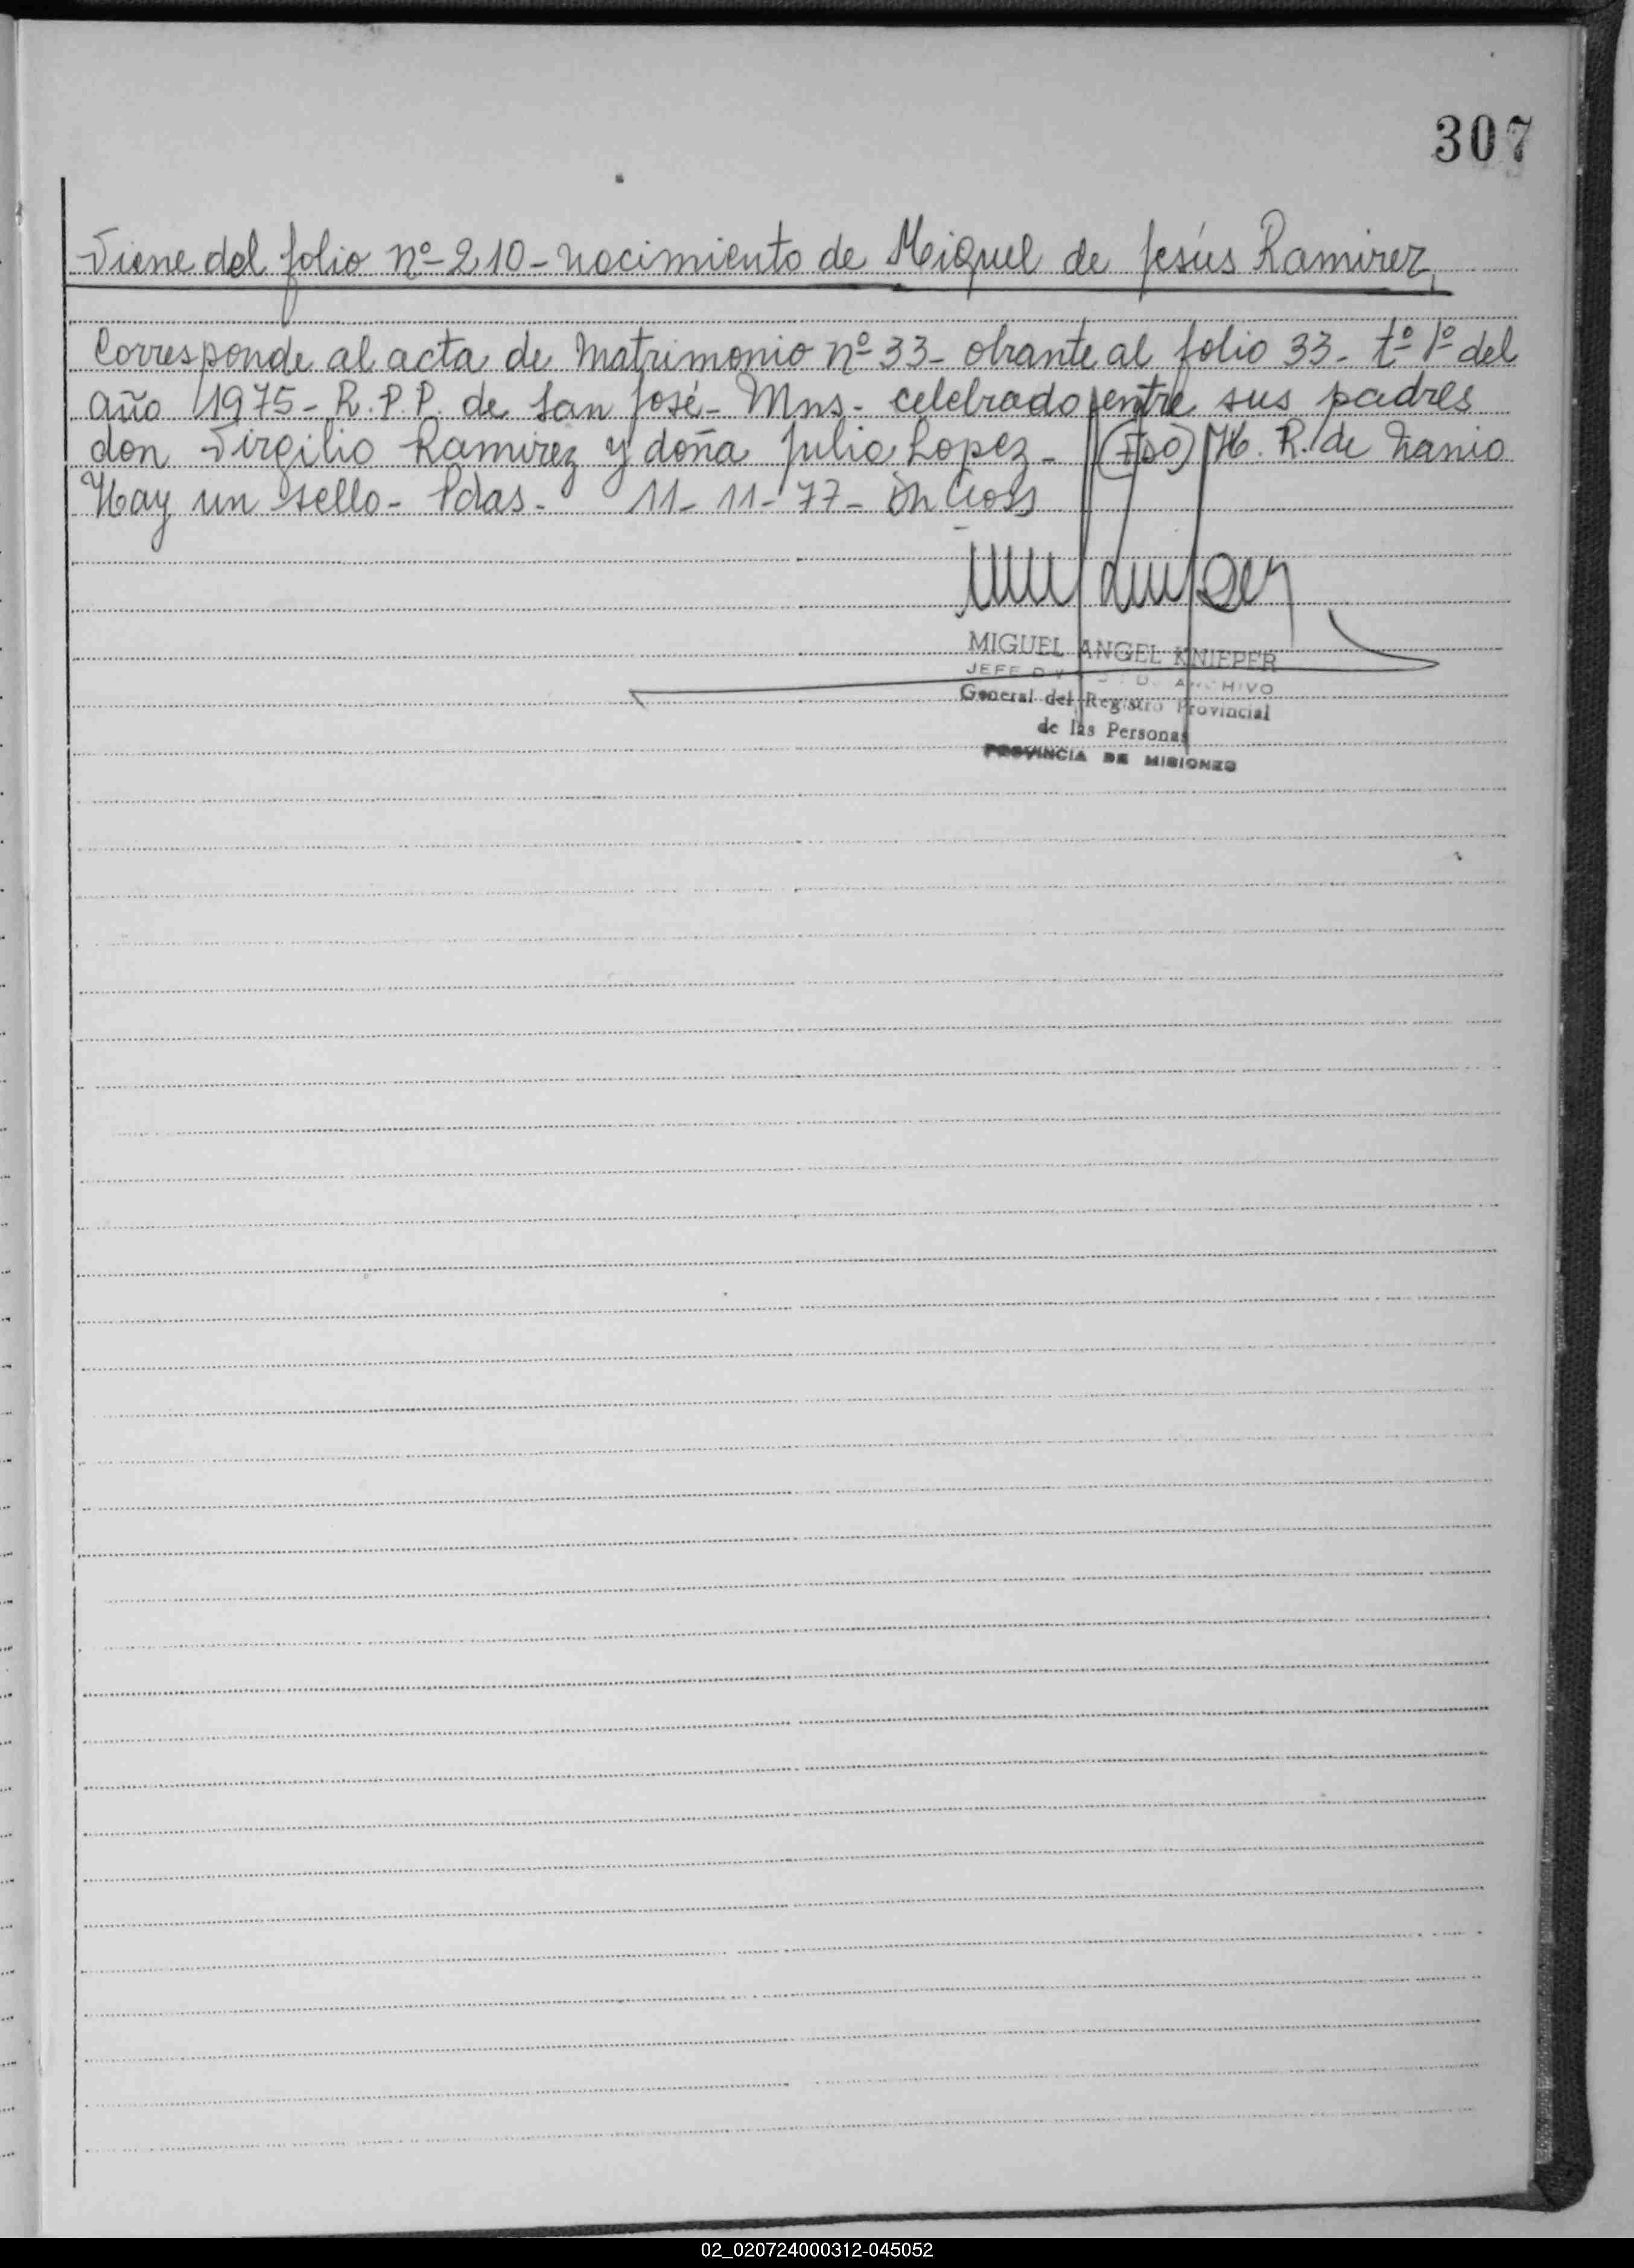 307
Viene del folio nº 210 - nacimiento de Miguel de Jesús Ramirez,
Corresponde al acta de Matrimonio nº 33 - obrante al folio 33 - tº 1º del
año 1975 - R.P.P. de San José - Mns - celebrado entre sus padres
don Virgilio Ramirez y doña Julia Lopez - (Fdo) H. R. de
Hay un sello - Pdas - 11 - 11 - 77 -
MIGUEL ANGEL KNIEPER
JEFE ARCHIVO
General del Registro Provincial
de las Personas
PROVINCIA DE MISIONES
02_020724000312-045052